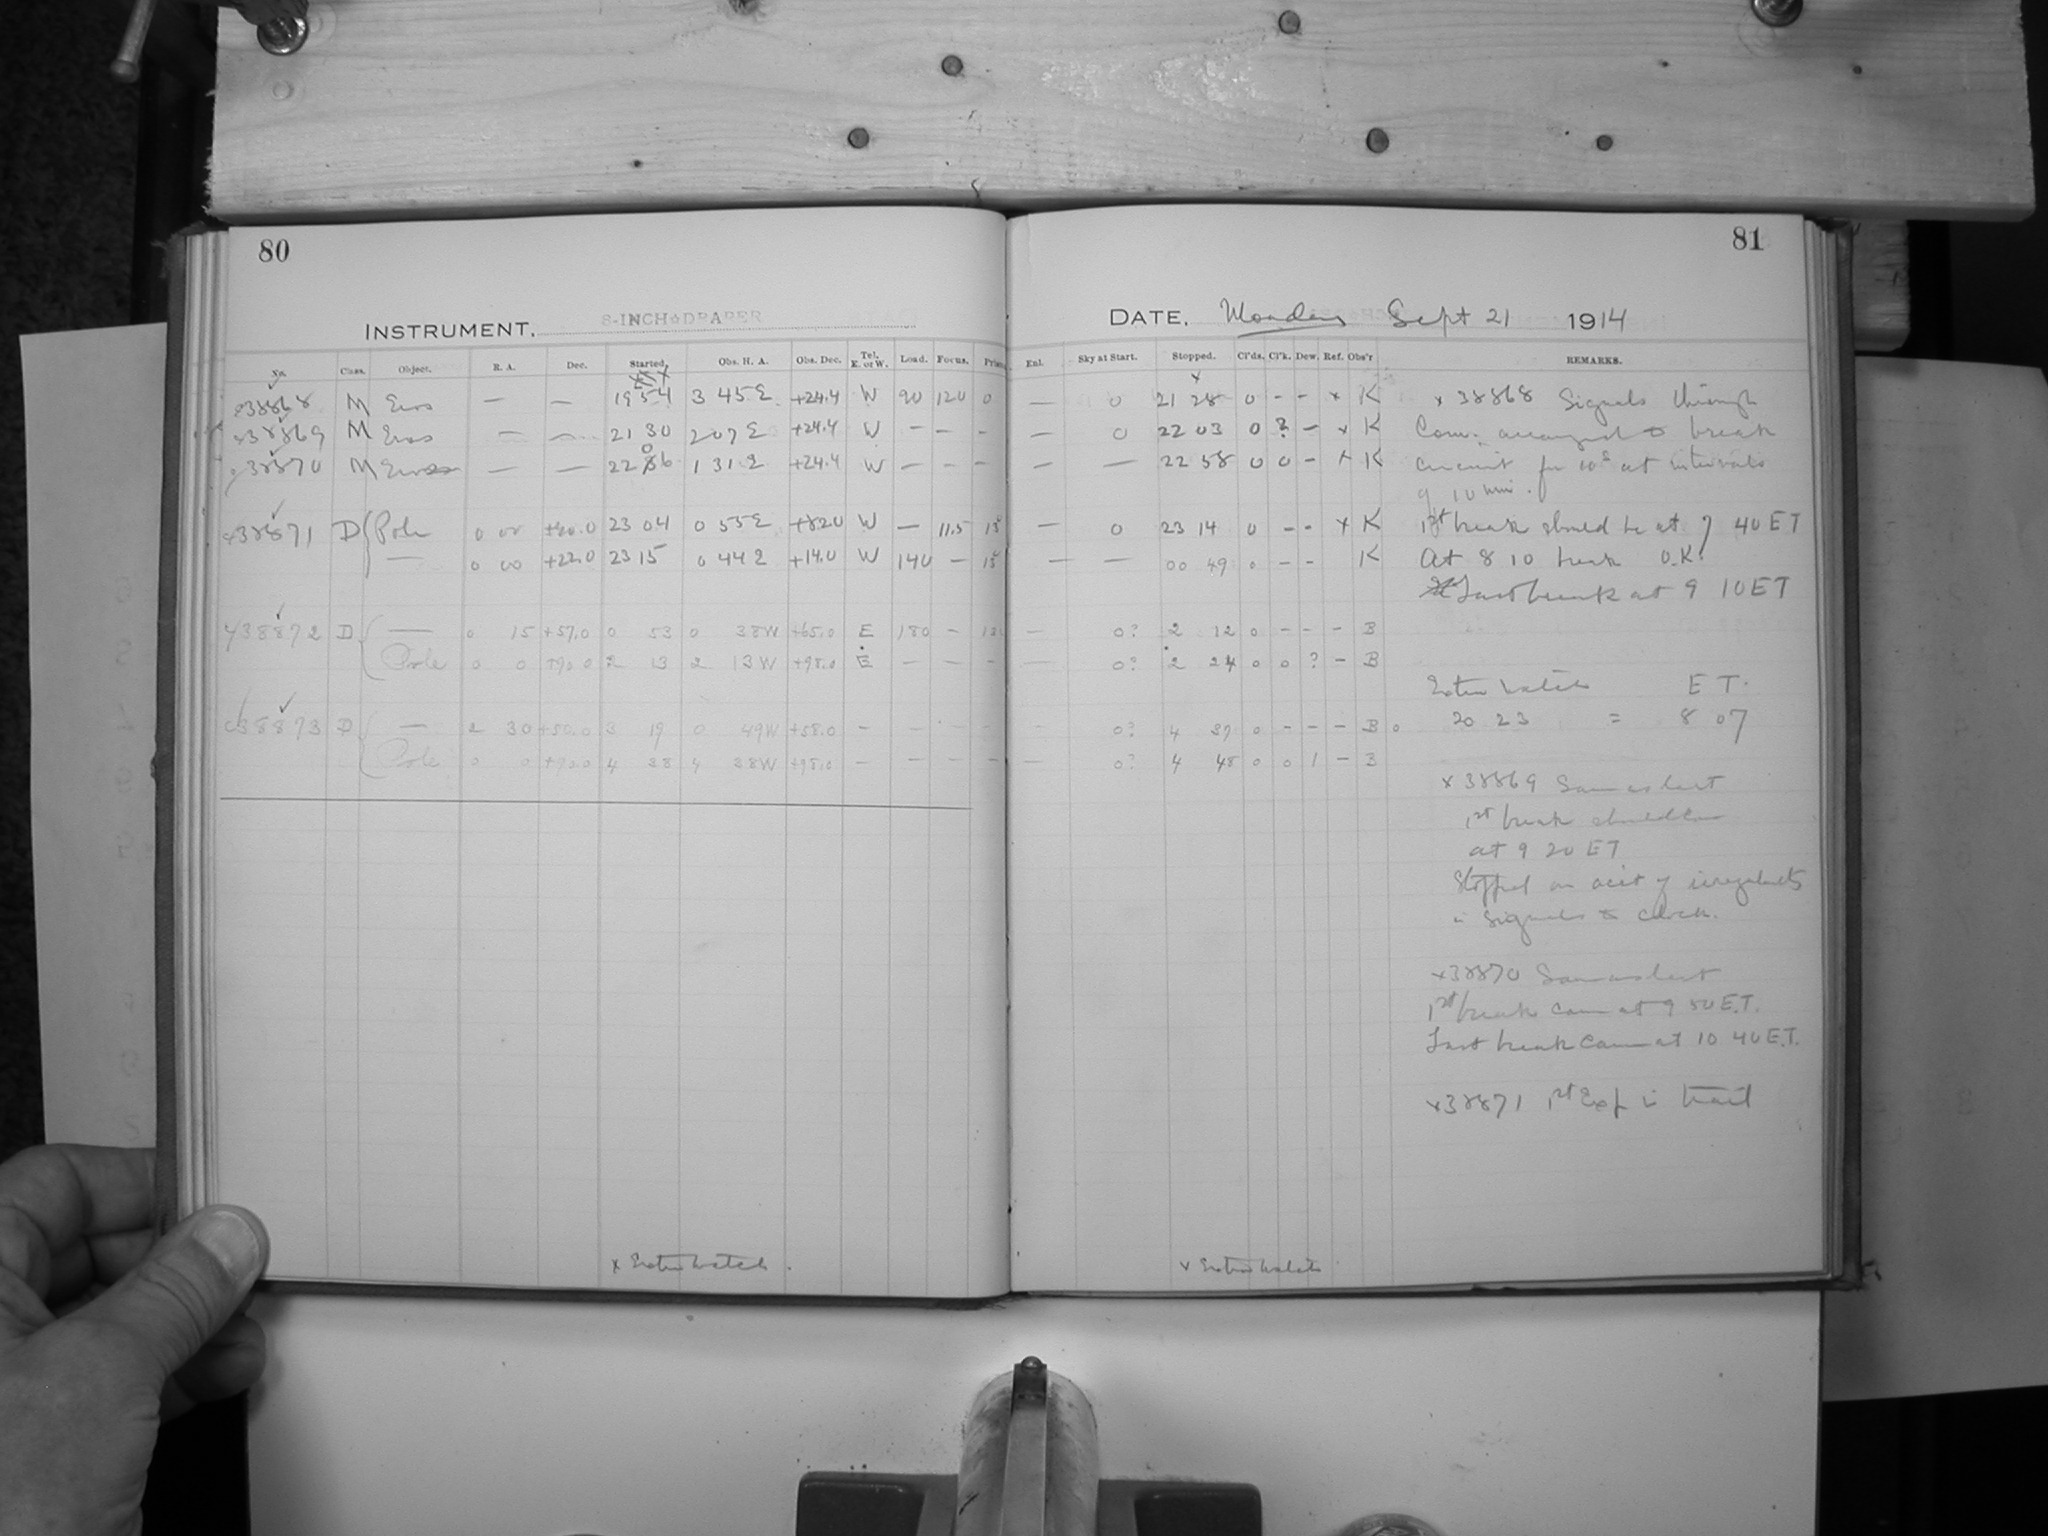 80
INSTRUMENT. 8-INCH DRAPER
No. Class. Object. R. A. Dec. Started. Obs. H. A. Obs. Dec. Tel. E. or W. Load. Focus. Prism
38868 M Eros — — 19 54 3 45 E +24.4 W 90 120 0
38869 M Eros — — 21 30 2 07 E +24.4 W — — —
38870 M Eros — — 22 06 1 31 E +24.4 W — — —
38871 D Pole 0 00 +90.0 23 04 0 55 E +82.0 W — 11.5 15
— 0 00 +22.0 23 15 0 44 E +14.0 W 140 — 15
38872 D — 0 15 +57.0 0 53 0 38W +65.0 E 180 –
Pole 0 0 +90.0 2 13 2 13W +98.0 E — — —
38873 D — 2 30 +50.0 3 19 0 49W +58.0 – – – –
Pole 0 0 +90.0 4 38 4 38W +98.0 — – – –
x Exter watch.
81
DATE. Monday Sept 21 1914
Enl. Sky at Start. Stopped. Cl'ds. Cl'k. Dew. Ref. Obs'r REMARKS.
— 0 21 28 0 - - x K x 38868 Signals through
— 0 22 03 0 ? – x K Com. arranged to break
— — 22 58 0 0 – x K circuit for 10s at intervals
of 10 min.
— 0 23 14 0 - - x K 1st break should be at 7 40 ET
— — 00 49 0 - - K At 8 10 break O.K.
Last break at 9 10 ET
— 0? 2 12 0 - - - B
— 0? 2 24 0 0 ? – B
Exter watch E T.
— 0? 4 37 0 - - - B 0 20 23 = 8 07
— 0? 4 48 0 0 1 – B
x 38869 Same as last
1st break should be
at 9 20 ET
Stopped on acct of irregularity
in signals to clock.
x38870 Same as last
1st break came at 9 50 E.T.
Last break came at 10 40 E.T.
x38871 1st Exp is trail
x Exter watch